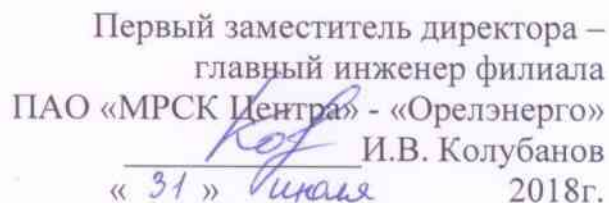 Первый заместитель директора –
главный инженер филиала
ПАО «МРСК Центра» - «Орелэнерго»
И.В. Колубанов
« 31 » июля 2018г.